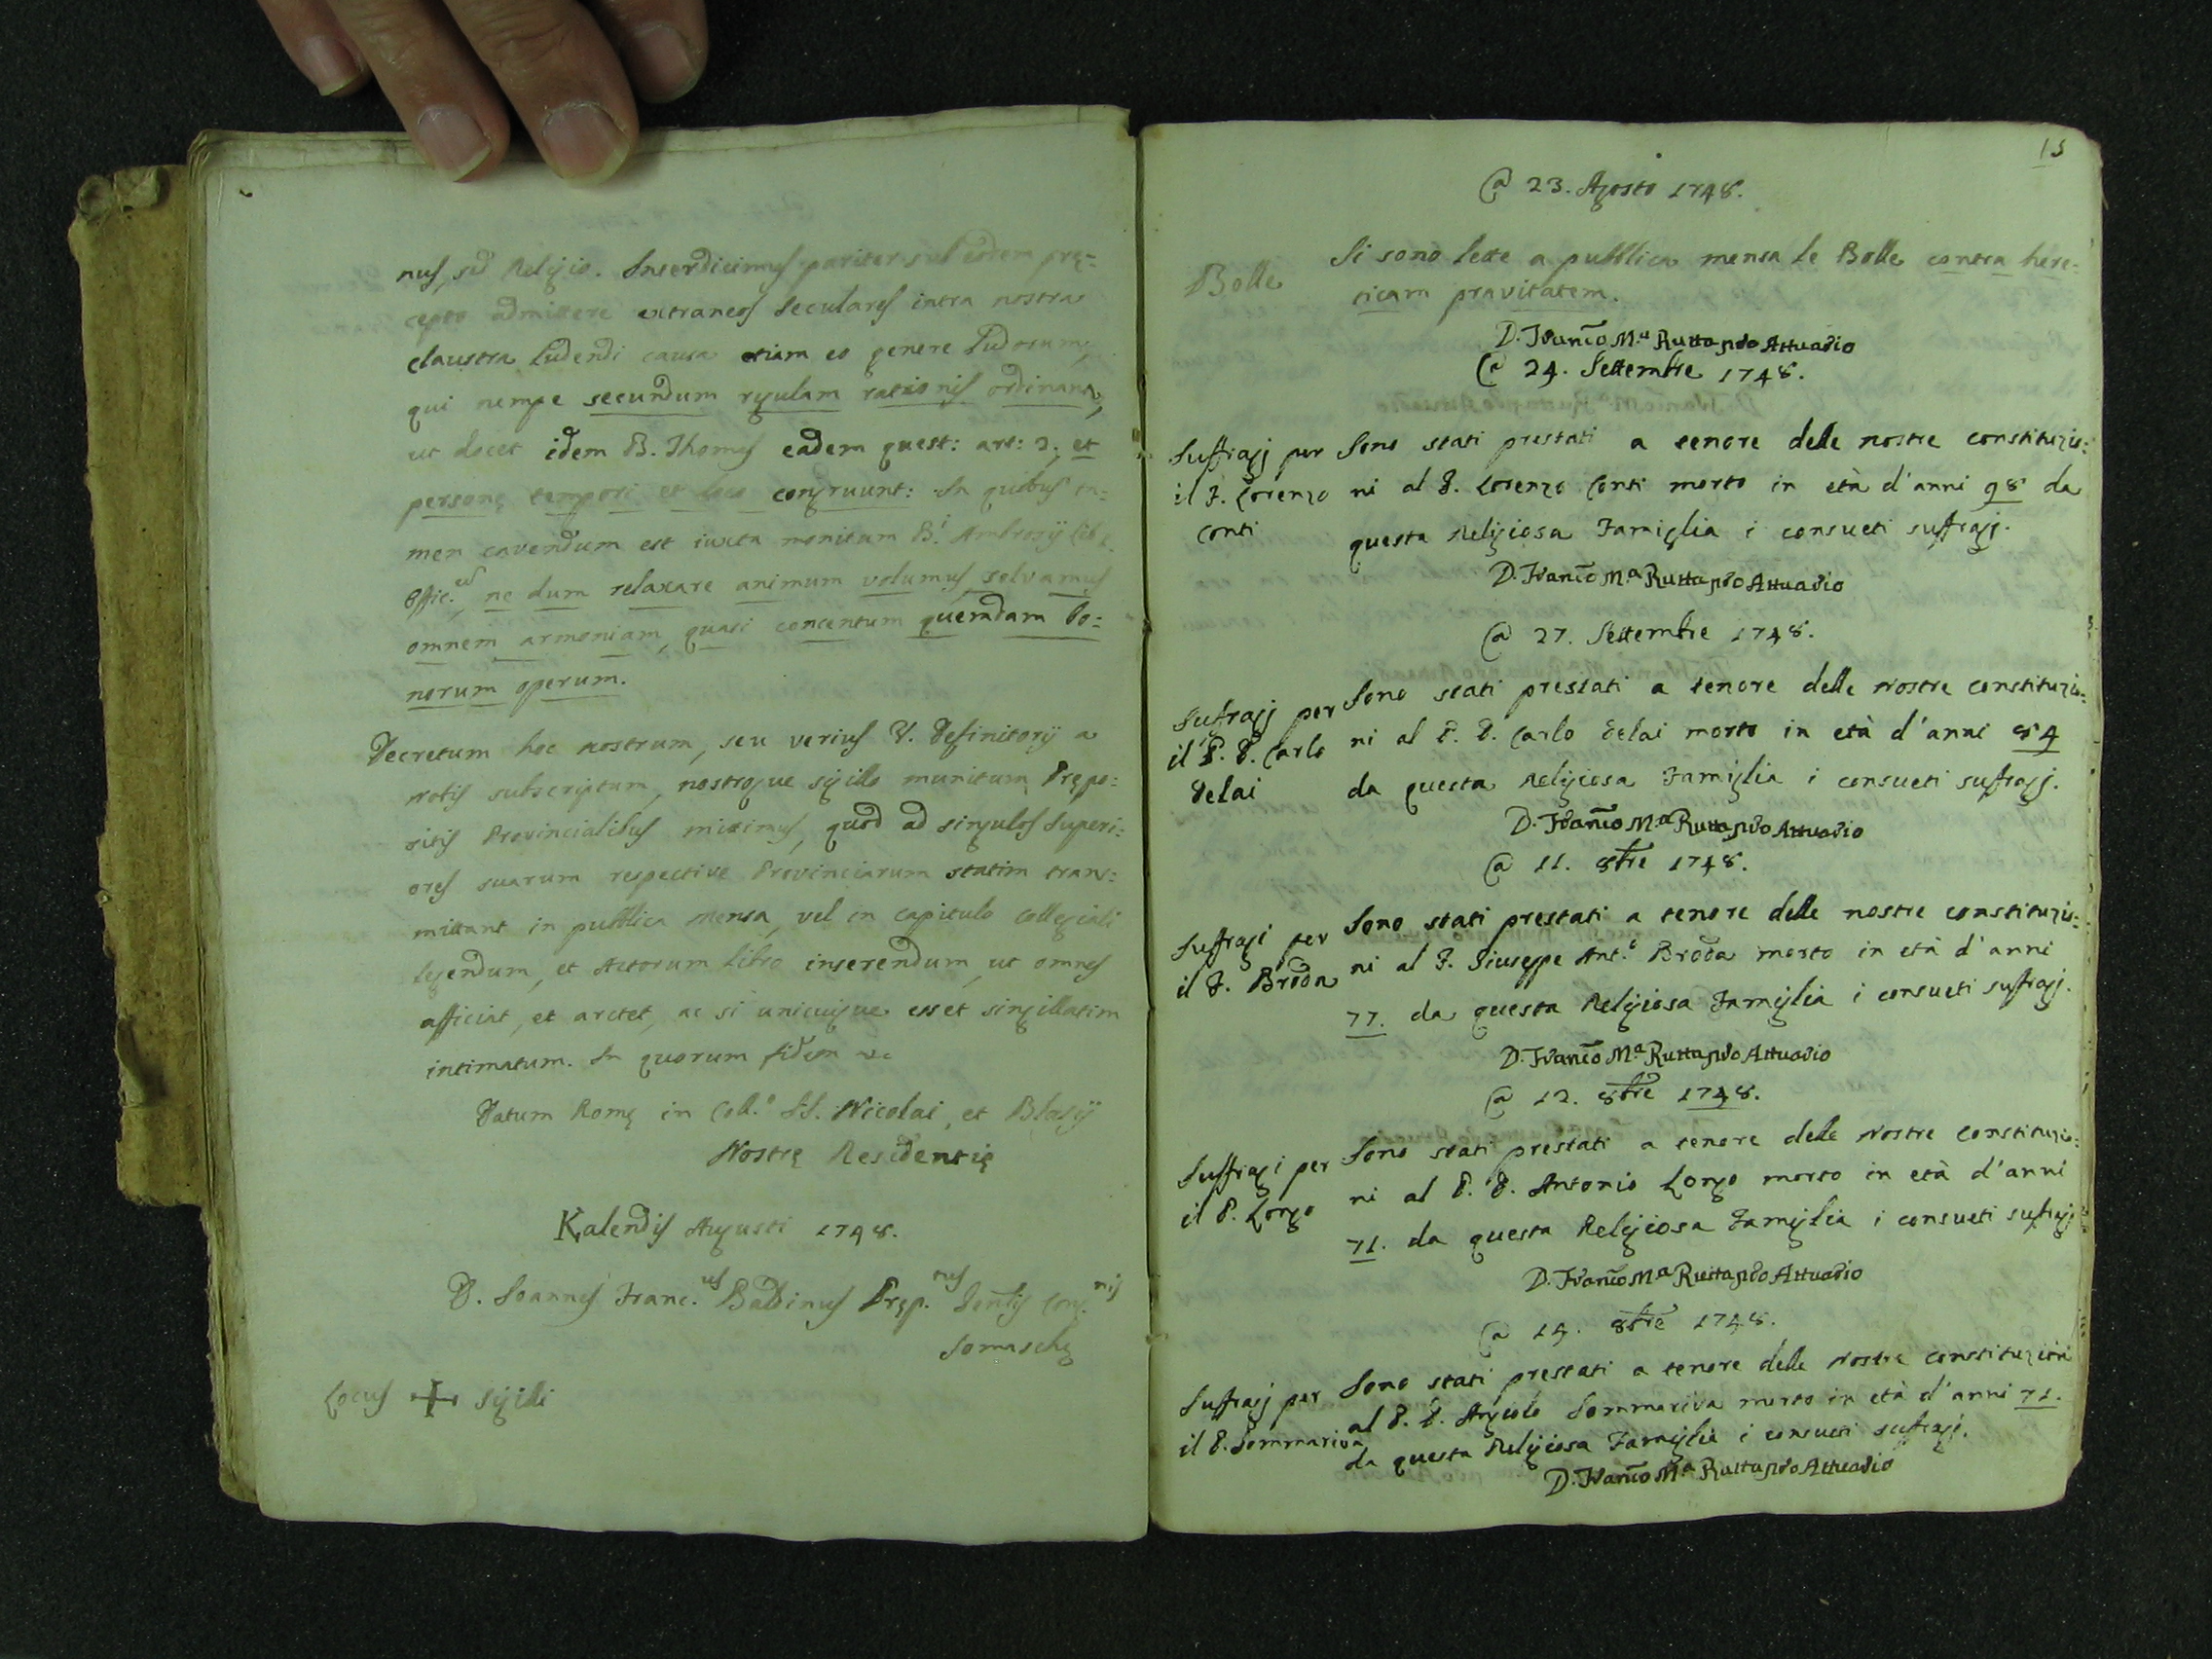 nus, sed Religio. Interdicimus pariter sub eodem pre=
cepto admittere extraneos seculares intra nostra
claustra ludendi causa etiam eo genere ludorum,
qui nempe secundum regulam rationis ordinanr,
ut docet idem B. Thomas eadem quest: art: 2; et
personę tempori et loco congruunt: In quibus ta=
men cavendum est iuxta monitum B.i Ambrosij lib.
Offic. ne dum relaxare animum volumus, solvamus
omnem armoniam, quasi concentum quemdam bo=
norum operum.
Decretum hoc nostrum, seu verius V. Definitorij a
Nobis subscriptum, nostroque sigillo munitum Prępo=
sitis Provincialibus mittimus, quod ad singulos Superi=
ores suarum respective Provinciarum statim trans=
mittant in publica Mensa, vel in Capitulo Collegiali
legendum, et Actorum Libro inserendum, ut omnes
afficiat, et arctet, ac si unicuique esset singillatim
intimatum. In quorum fidem &c
Datum Romę in Coll.o SS. Nicolai, et Blasij
Nostrę Residentię
Kalendis Augusti 1748.
D. Joannes Franc.us Baldinus Pręp.tus Gen̄lis Cong.nis
Somaschę
Locus + Sigilli
15
@ 23. Agosto 1748.
Bolle
Si sono lette a pubblica mensa le Bolle contra here=
ticam pravitatem.
D. Franc̄o M.a Rutta pro Attuario
@ 24. Settembre 1748.
Suffragj per
il F. Lorenzo
Conti
Sono stati prestati a tenore delle nostre constituzio=
ni al F. Lorenzo Conti morto in età d'anni 98 da
questa Religiosa Famiglia i consueti suffragj.
D. Franc̄o M.a Rutta pro Attuario
@ 27. Settembre 1748.
Sufragj per
il P. D. Carlo
Delai
Sono stati prestati a tenore delle Nostre constituzio=
ni al P. D. Carlo Delai morto in età d'anni 84
da questa Religiosa Famiglia i consueti sufragj.
D. Franc̄o M.a Rutta pro Attuario
@ 11. 8bre 1748.
Suffragi per
il F. Broda
Sono stati prestati a tenore delle nostre constituzio=
ni al F. Giuseppe Ant.o Broda morto in età d'anni
77. da questa Religiosa Famiglia i consueti suffragj.
D. Franc̄o M.a Rutta pro Attuario
@ 12. 8bre 1748.
Suffragi per
il P. Longo
Sono stati prestati a tenore delle Nostre Constituzio=
ni al P. D. Antonio Longo morto in età d'anni
71. da questa Religiosa Famiglia i consueti sufragj
D. Franc̄o M.a Rutta pro Attuario
@ 14. 8bre 1748.
Suffragj per
il P. Sommariva
Sono stati prestati a tenore delle Nostre constituzioni
al P. D. Angiolo Sommariva morto in età d'anni 71.
da questa Religiosa Famiglia i consueti sufragj.
D. Franc̄o M.a Rutta pro Attuario